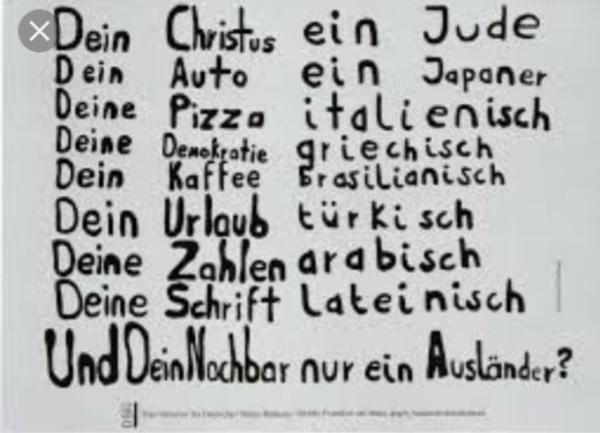 Dein Christus ein Jude
Dein Auto ein Japaner
Deine Pizza italienisch
Deine Demokratie griechisch
Dein Kaffee Brasilianisch
Dein Urlaub türkisch
Deine Zahlen arabisch
Deine Schrift Lateinisch
Und Dein Nachbar nur ein Ausländer?